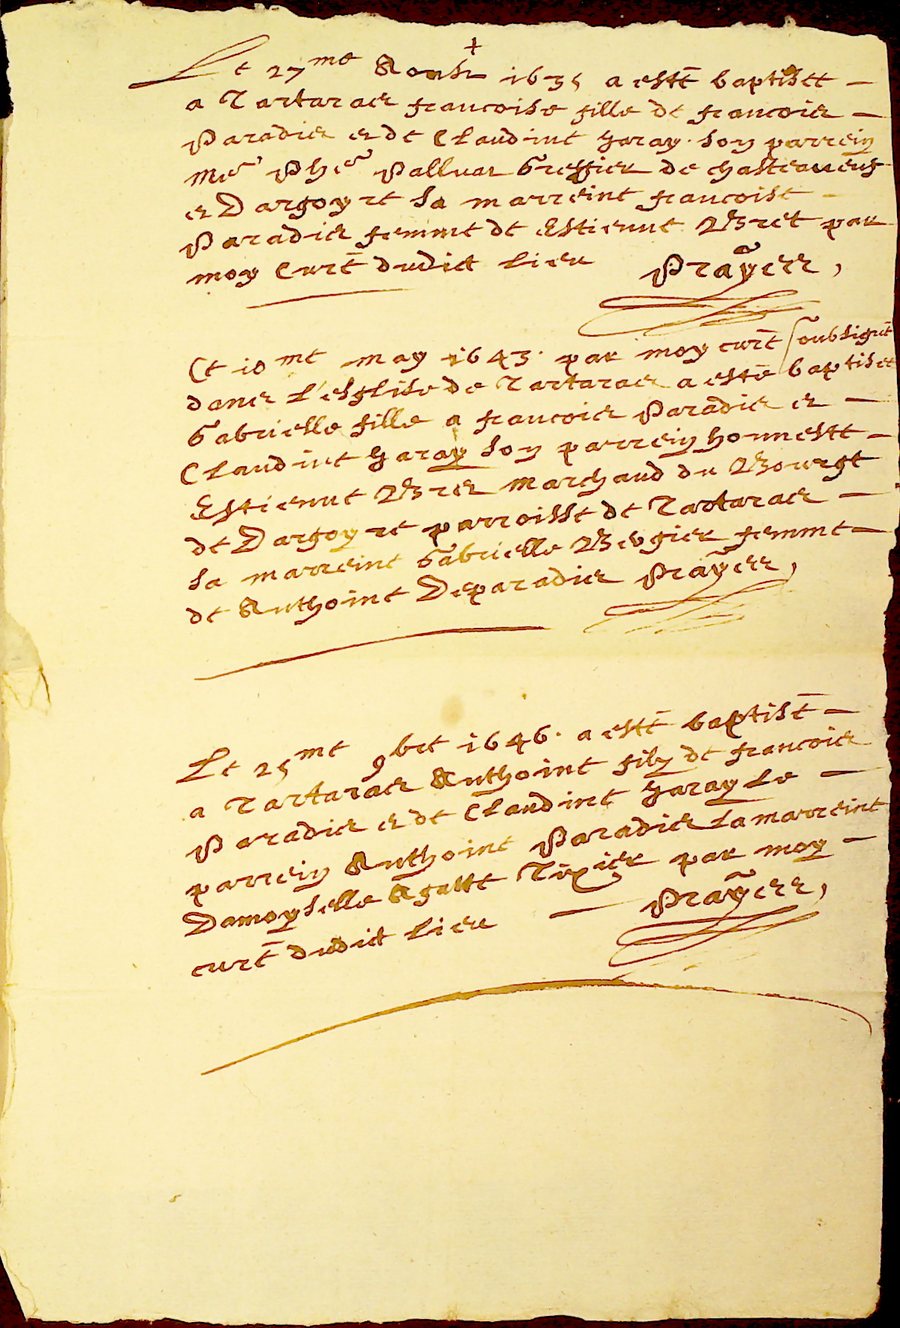 +
Le 27me Aoust 1635 a esté baptisee
a Tartaras francoise fille de francois
Paradis et de Claudine Garay. Son parrein
Me Phe Palluat Greffier de chasteauneuf
et Dargoyre sa marreine francoise
Paradis femme de Estienne Bret par
moy Curé dudict lieu Prayere,
Ce 10me may 1643. par moy curé soubsigné
dans l'esglise de Tartaras a esté baptisee
Gabrielle fille a francois Paradis et
Claudine Garay son parrein honneste
Estienne Bret marchand du Bourgt
de Dargoyre parroisse de Tartaras
sa marreine Gabrielle Bergier femme
de Anthoine Deparadis Prayere,
Le 25me 9bre 1646. a esté baptisé
a Tartaras Anthoine filz de francois
Paradis et de Claudine Garay Le
parrein Anthoine Paradis La marreine
Damoyselle Agatte Tixier par moy
curé dudict lieu Prayere,